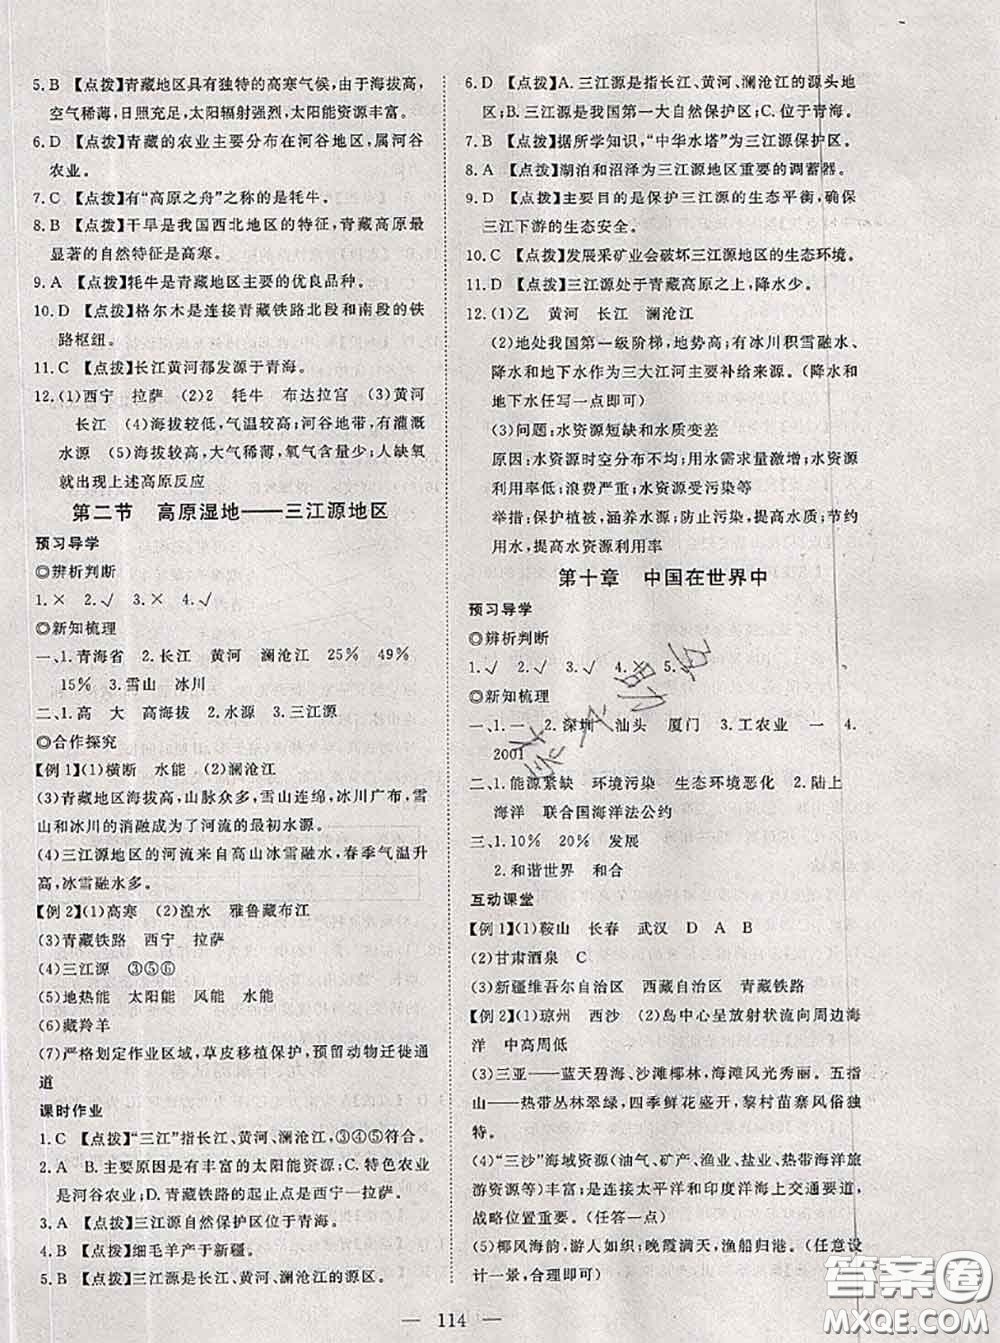 5. B 【点拨】青藏地区具有独特的高寒气候,由于海拔高,
空气稀薄,日照充足,太阳辐射强烈,太阳能资源丰富。
6. D 【点拨】青藏的农业主要分布在河谷地区,属河谷
农业。
7. C 【点拨】有“高原之舟”之称的是牦牛。
8. B 【点拨】干旱是我国西北地区的特征,青藏高原最
显著的自然特征是高寒。
9. A 【点拨】牦牛是青藏地区主要的优良品种。
10. D 【点拨】格尔木是连接青藏铁路北段和南段的铁
路枢纽。
11. C 【点拨】长江黄河都发源于青海。
12. (1)西宁 拉萨 (2)2 牦牛 布达拉宫 (3)黄河
长江 (4)海拔较低,气温较高;河谷地带,有灌溉
水源 (5)海拔较高,大气稀薄,氧气含量少;人缺氧
就出现上述高原反应
第二节 高原湿地——三江源地区
预习导学
◎辨析判断
1. × 2. √ 3. × 4. √
◎新知梳理
一、1. 青海省 2. 长江 黄河 澜沧江 25% 49%
15% 3. 雪山 冰川
二、1. 高 大 高海拔 2. 水源 3. 三江源
◎合作探究
【例 1】(1)横断 水能 (2)澜沧江
(3)青藏地区海拔高,山脉众多,雪山连绵,冰川广布,雪
山和冰川的消融成为了河流的最初水源。
(4)三江源地区的河流来自高山冰雪融水,春季气温升
高,冰雪融水多。
【例 2】(1)高寒 (2)湟水 雅鲁藏布江
(3)青藏铁路 西宁 拉萨
(4)三江源 ③⑤⑥
(5)地热能 太阳能 风能 水能
(6)藏羚羊
(7)严格划定作业区域,草皮移植保护,预留动物迁徙通
道
课时作业
1. C 【点拨】“三江”指长江、黄河、澜沧江,③④⑤符合。
2. A B. 主要原因是有丰富的太阳能资源;C. 特色农业
是河谷农业;D. 青藏铁路的起止点是西宁—拉萨。
3. A 【点拨】三江源自然保护区位于青海。
4. B 【点拨】细毛羊产于新疆。
5. B 【点拨】是长江、黄河、澜沧江的源区。
6. D 【点拨】A. 三江源是指长江、黄河、澜沧江的源头地
区;B. 三江源是我国第一大自然保护区;C. 位于青海。
7. B 【点拨】据所学知识,“中华水塔”为三江源保护区。
8. A 【点拨】湖泊和沼泽为三江源地区重要的调蓄器。
9. D 【点拨】主要目的是保护三江源的生态平衡,确保
三江下游的生态安全。
10. C 【点拨】发展采矿业会破坏三江源地区的生态环境。
11. D 【点拨】三江源处于青藏高原之上,降水少。
12. (1)乙 黄河 长江 澜沧江
(2)地处我国第一级阶梯,地势高;有冰川积雪融水、
降水和地下水作为三大江河主要补给来源。(降水
和地下水任写一点即可)
(3)问题:水资源短缺和水质变差
原因:水资源时空分布不均;用水需求量激增;水资
源利用率低;浪费严重;水资源受污染等
举措:保护植被,涵养水源;防止污染,提高水质;节约
用水,提高水资源利用率
第十章 中国在世界中
预习导学
◎辨析判断
1. √ 2. √ 3. √ 4. × 5. √
◎新知梳理
一、1. 一 2. 深圳 汕头 厦门 3. 工农业 一 4.
2001
二、1. 能源紧缺 环境污染 生态环境恶化 2. 陆上
海洋 联合国海洋法公约
三、1. 10% 20% 发展
2. 和谐世界 和合
互动课堂
【例 1】(1)鞍山 长春 武汉 D A B
(2)甘肃酒泉 C
(3)新疆维吾尔自治区 西藏自治区 青藏铁路
【例 2】(1)琼州 西沙 (2)岛中心呈放射状流向周边海
洋 中高周低
(3)三亚——蓝天碧海、沙滩椰林,海滩风光秀丽。五指
山——热带丛林翠绿,四季鲜花盛开,黎村苗寨风俗独
特。
(4)“三沙”海域资源(油气、矿产、渔业、盐业、热带海洋
旅游资源等)丰富;是连接太平洋和印度洋海上交通要道,
战略位置重要。(任答一点)
(5)椰风海韵,游人如织;晚霞满天,渔船归港。(任意设
计一景,合理即可)
— 114 —
答案圈
MXQE.COM